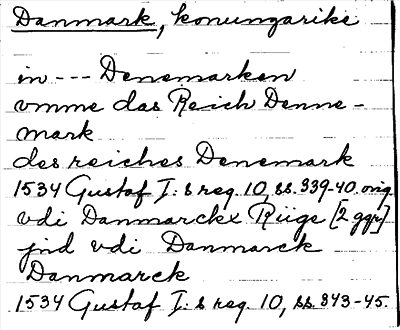 Danmark, konungarike
in --- Denemarken
vmme das Reich Denne-
mark
des reiches Denemark
1534 Gustaf I:s reg. 10, ss. 339-40. orig.
vdi Danmarckx Riige [2 ggr]
jnd vdi Danmarck
Danmarck
1534 Gustaf I:s reg. 10, ss. 343-45.